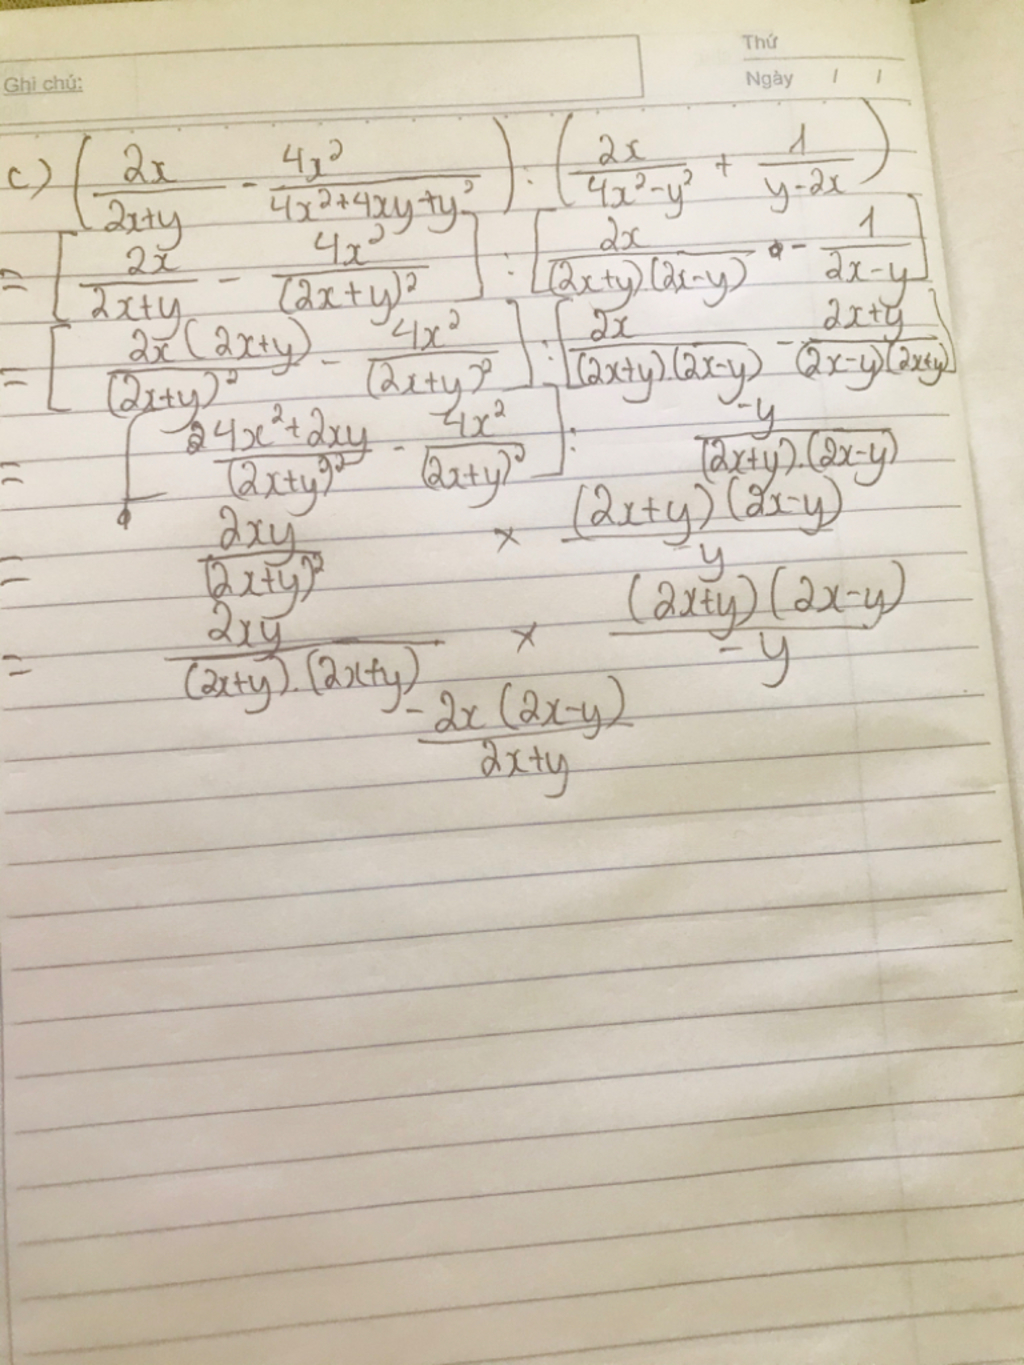 Thứ
Ghi chú:
Ngày / /
c) (2x/(2x+y) - 4x²/(4x²+4xy+y²)) : (2x/(4x²-y²) + 1/(y-2x))
= [2x/(2x+y) - 4x²/(2x+y)²] : [2x/((2x+y).(2x-y)) - 1/(2x-y)]
= [2x(2x+y)/(2x+y)² - 4x²/(2x+y)²] : [2x/((2x+y).(2x-y)) - (2x+y)/((2x-y)(2x+y))]
= [(4x²+2xy)/(2x+y)² - 4x²/(2x+y)²] : -y/((2x+y).(2x-y))
= 2xy/(2x+y)² × (2x+y)(2x-y)/-y
= 2xy/((2x+y).(2x+y)) × (2x+y)(2x-y)/-y
-2x(2x-y)/(2x+y)